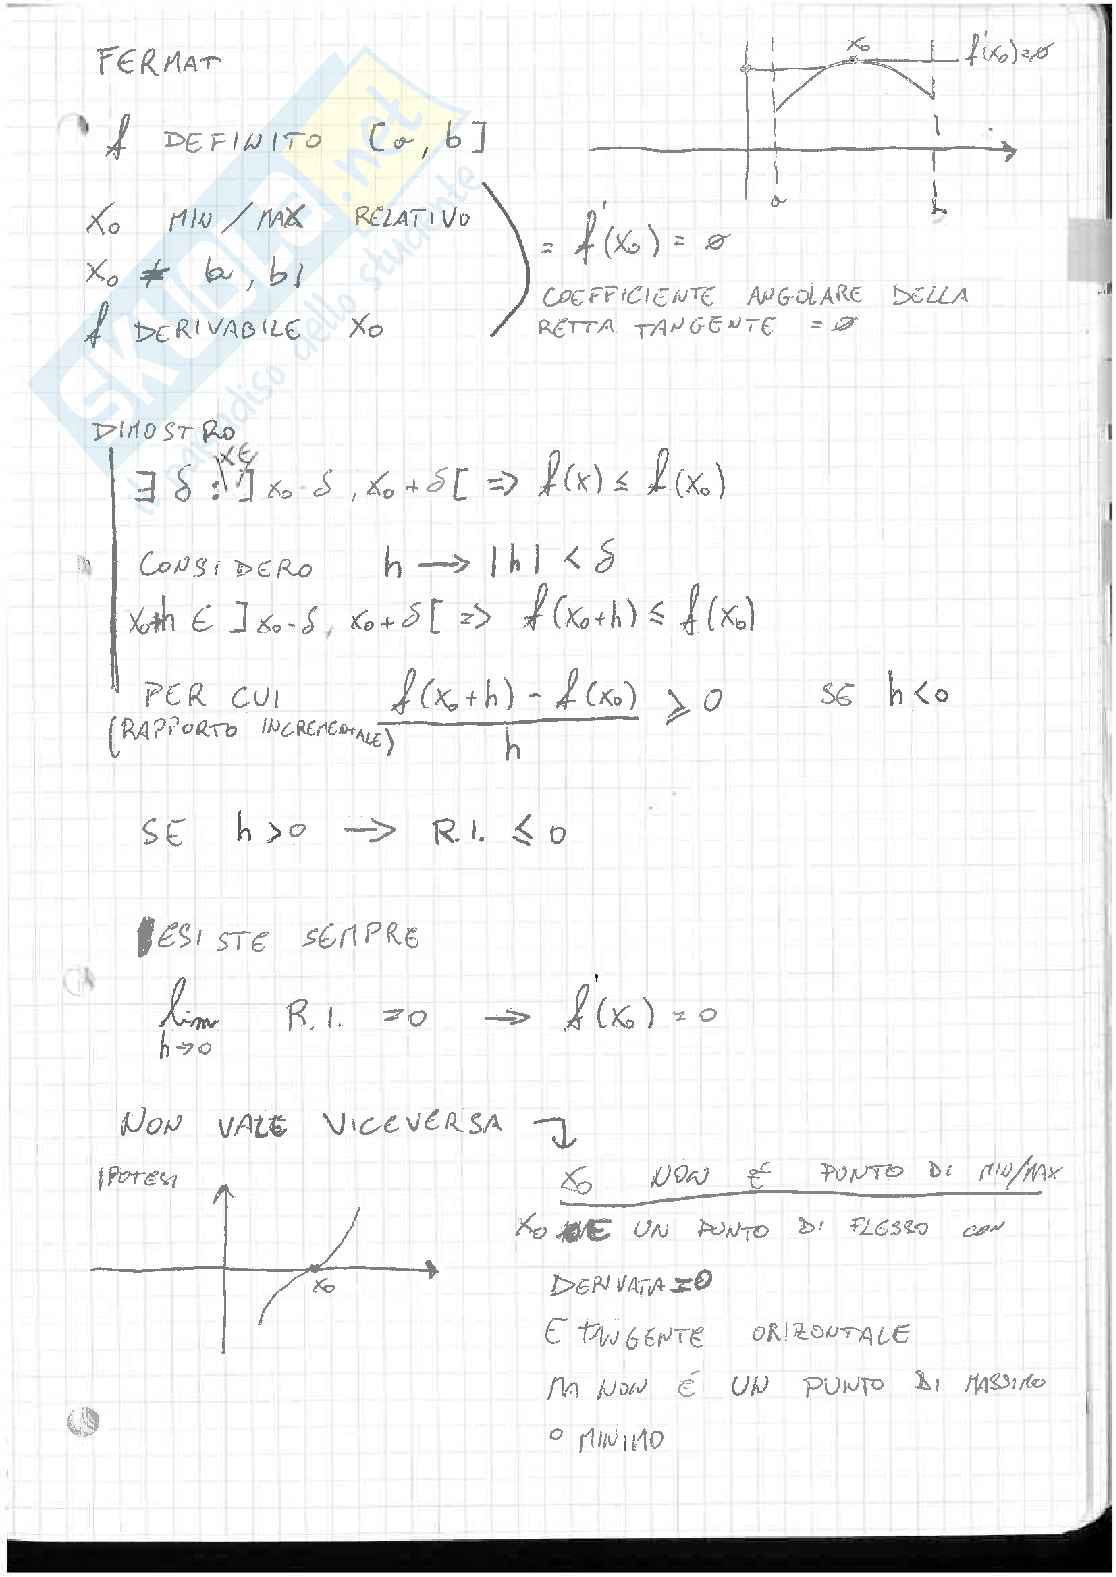 FERMAT
x₀
f'(x₀)=∅
f DEFINITO [a, b]
a
b
x₀ MIN/MAX RELATIVO
x₀ ≠ {a, b}
f DERIVABILE x₀
= f'(x₀) = ∅
COEFFICIENTE ANGOLARE DELLA
RETTA TANGENTE = ∅
SKUOLA.net
il paradiso dello studente
DIMOSTRO
x∈
∃ δ : ]x₀-δ, x₀+δ[ => f(x) ≤ f(x₀)
CONSIDERO h → |h| < δ
x₀+h ∈ ]x₀-δ, x₀+δ[ => f(x₀+h) ≤ f(x₀)
PER CUI f(x₀+h) - f(x₀) / h ≥ 0 SE h<0
(RAPPORTO INCREMENTALE)
SE h>0 → R.I. ≤ 0
ESISTE SEMPRE
lim h→0 R.I. =0 → f'(x₀)=0
NON VALE VICEVERSA
IPOTESI
x₀
x₀ NON È PUNTO DI MIN/MAX
x₀ È UN PUNTO DI FLESSO CON
DERIVATA=0
E TANGENTE ORIZONTALE
MA NON É UN PUNTO DI MASSIMO
O MINIMO